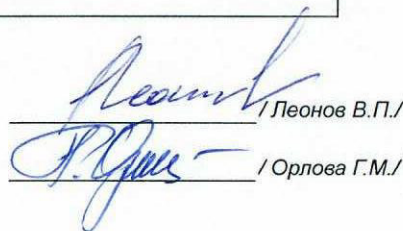 / Леонов В.П./
/ Орлова Г.М./